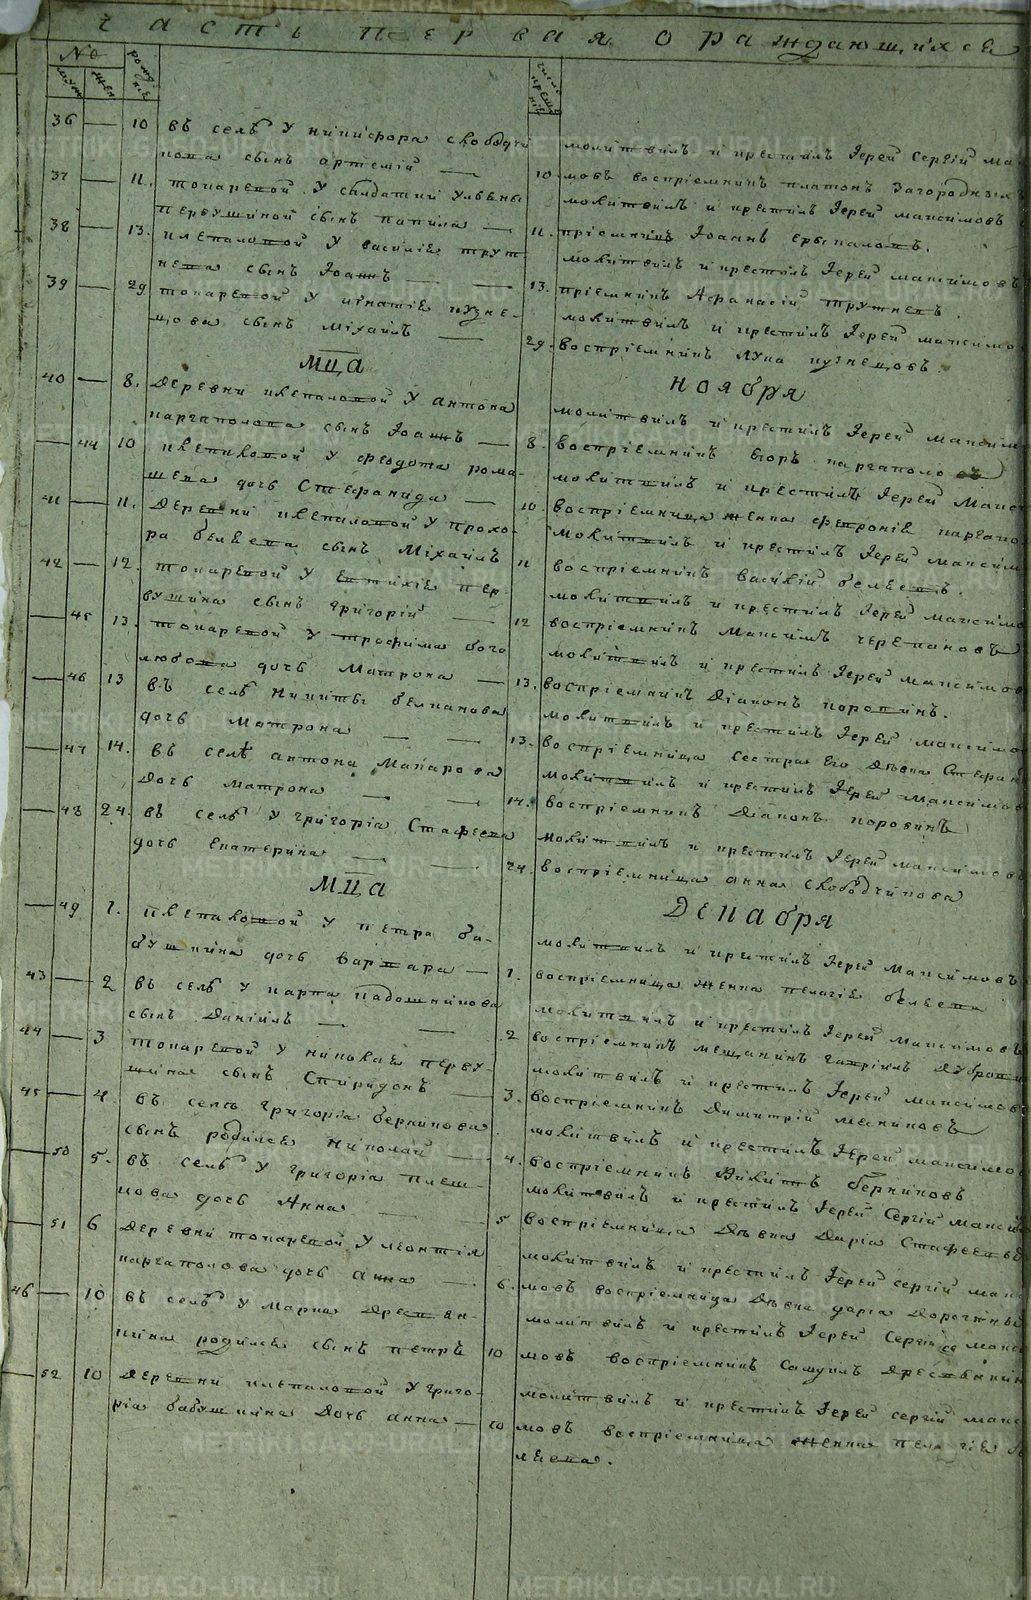 Часть первая о раждающихся
№
муж жен
рожденіе
число крещеніе
36 — 10 въ селѣ у никифора слободчи
кова сынъ артемій —
молитвилъ и крестилъ Іерей Сергій Ма
10 мовъ воспріемникъ платонъ Загородныхъ
37 11. токаревой у салдатки Ульяны
Первушиной сынъ —
молитвилъ и крестилъ Іерей максимовъ
11. пріемникъ Іоаннъ
38 13. клепаловой у василіе трут
нева сынъ Іоаннъ — —
молитвилъ и крестилъ Іерей максимовъ
13. пріемникъ Афанасій трутневъ.
39 — 29 токаревой у игнатіе кузне-
цова сынъ Міхаилъ —
молитвилъ и крестилъ Іерей максимо
29. воспріемникъ Лука кузнецовъ.
Мца Ноября
40 — 8. Деревни клепаловой у антона
каргаполова сынъ Іоаннъ —
молитвилъ и крестилъ Іерей Максим
8. воспріемникъ каргаполовъ
— 44 10 клепиковой у федота рома
шева дочь Стефанида —
молитвилъ и крестилъ Іерей Макс
10. воспріемница женка февроніе каргапо
41 — 11. Деревни клепаловой у прохо-
ра белаева сынъ Міхаилъ
молитвилъ и крестилъ Іерей Максим
11 воспріемникъ василій белаевъ.
42 — 12. токаревой у Евтихіе пер-
вушина сынъ григорій —
молитвилъ и крестилъ Іерей максимо
12 воспріемникъ Максимъ черепановъ
— 45 13. токаревой у трофима бого
любова дочь Матрона —
молитвилъ и крестилъ Іерей максимов
13. воспріемникъ Діаконъ коровинъ.
— 46 13 въ селѣ никиты белканова
дочь Матрона — —
молитвилъ и крестилъ Іерей максимо
13. воспріемница сестра Его Дѣвка Стефан
— 47 14. въ селѣ антона Макарова
Дочь матрона — —
молитвилъ и крестилъ Іерей максимов
14. воспріемникъ Діаконъ коровинъ
— 48 24. въ селѣ у григоріа Стафеева
дочь Екатерина — —
молитвилъ и крестилъ Іерей максимовъ
24. воспріемница анна слободчикова
Мца Декабря
— 49 1. клепаловой у петра ба-
бушкина дочь варвара —
молитвилъ и критилъ Іерей Максимовъ
1. воспріемница женка пелагіе белаева
43 — 2 въ селѣ у карпа кадошникова
сынъ Даніилъ — —
молитвилъ и крестилъ Іерей Максимовъ
2 воспріемникъ мещанинъ гавріилъ Дубров
44 — 3 токаревой у николае перву-
шина сынъ Спиридонъ —
молитвилъ и крестилъ Іерей максимовъ
3. воспріемникъ Димитрій мясниковъ
45 — 4. въ селѣ григоріа берникова
сынъ родился николай —
молитвилъ и крестилъ Іерей максимо
4. воспріемникъ берниковъ
— 50 5. въ селѣ у григоріа плеш-
кова дочь Анна —
молитвилъ и крестилъ Іерей Сергій макси
5 воспріемница Дѣвка Даріа Стафеева
— 51 6 Деревни токаревой у леонтіа
каргаполова дочь анна —
молитвилъ и крестилъ Іерей сергій макс
6. мовъ воспріемница Дѣвка даріа
46 — 10 въ селѣ у марка Дресвен-
кина родился сынъ петръ
молитвилъ и крестилъ Іерей Сергій макс
10 мовъ воспріемникъ Самуилъ Дресвенкин
— 52 10 Деревни клепаловой у григо-
ріа бабушкина Дочь анна —
молитвилъ и крестилъ Іерей сергій макс
10 мовъ воспріемница женка пелагіе бе
лаева.
METRIKI.GASO-URAL.RU